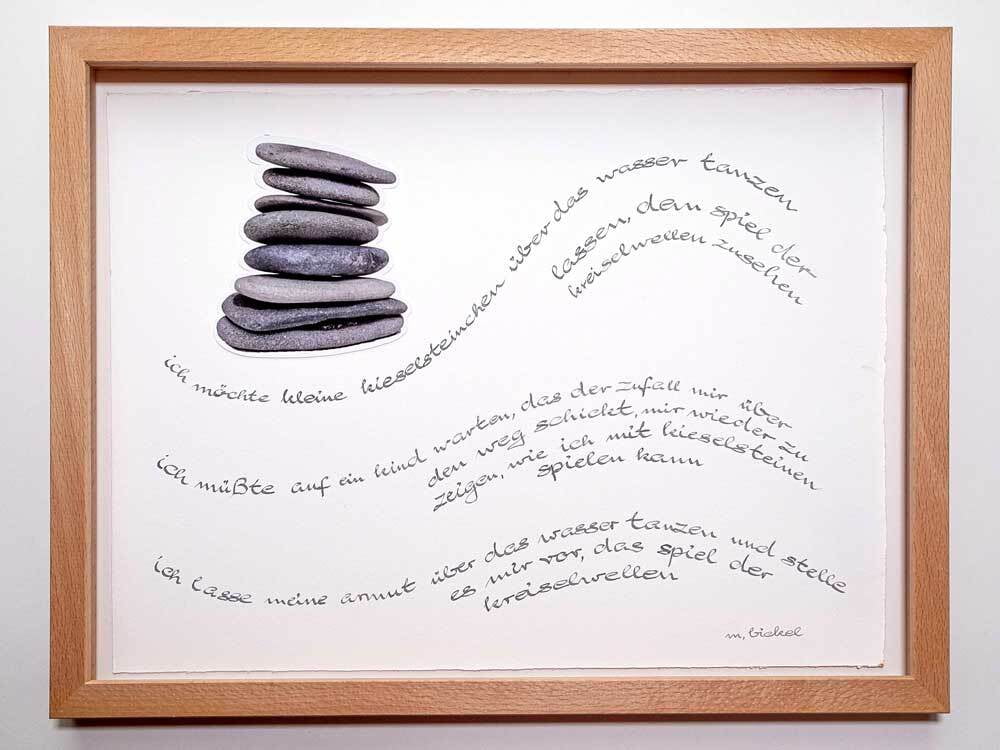 ich möchte kleine kieselsteinchen über das wasser tanzen
lassen, dem spiel der
kreiselwellen zusehen
ich müßte auf ein kind warten, das der zufall mir über
den weg schickt, mir wieder zu
zeigen, wie ich mit kieselsteinen
spielen kann
ich lasse meine armut über das wasser tanzen und stelle
es mir vor, das spiel der
kreiselwellen
m. bickel